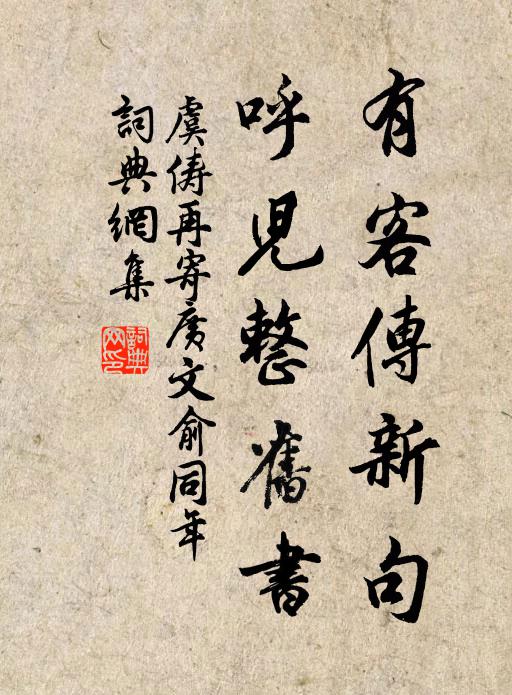 有客傳新句
呼兒整舊書
虞儔再寄廣文俞同年
詞典網集
詞典網印